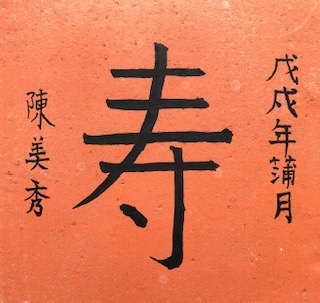 戊戌年蒲月
寿
陳美秀